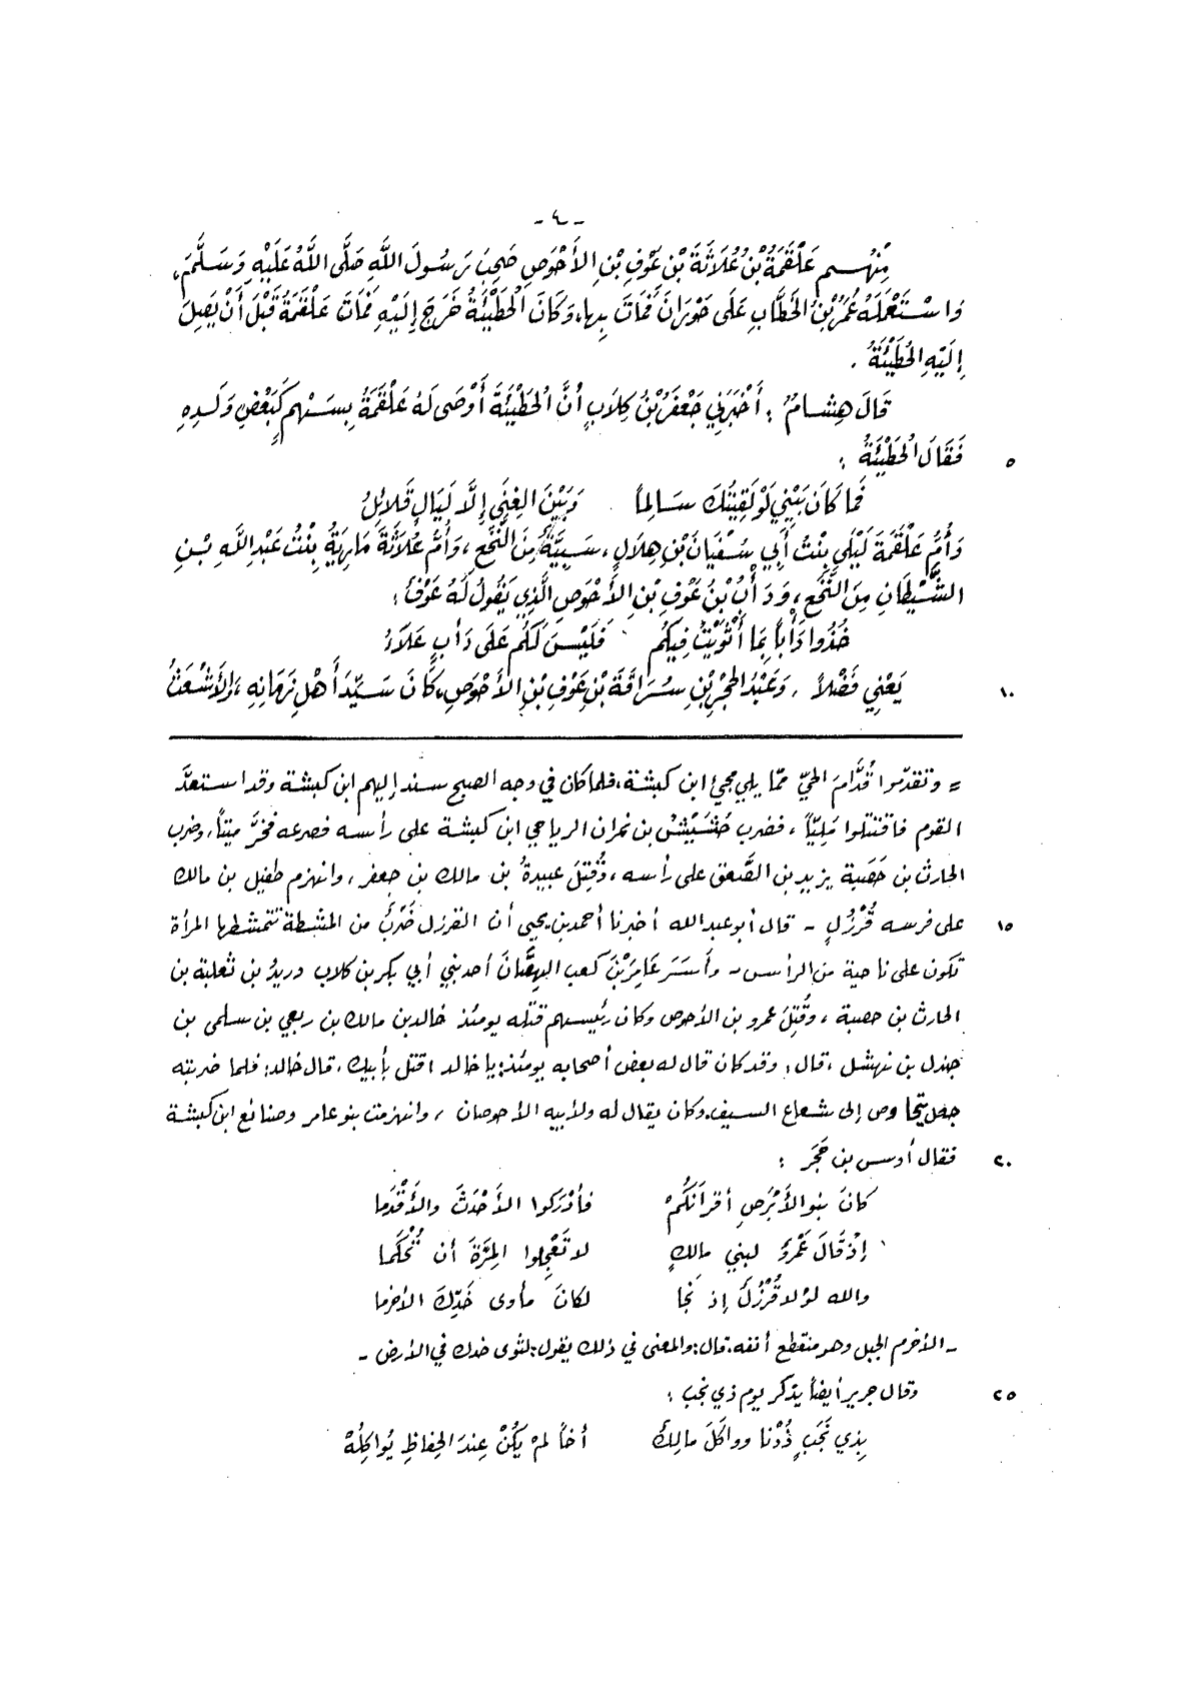 - ٤ -
مِنْهُم عَلْقَمَةُ بْنُ عُلَاثَةَ بْنِ عَوْفِ بْنِ الأَحْوَصِ صَحِبَ رَسُولَ اللَّهِ صَلَّى اللَّهُ عَلَيْهِ وَسَلَّمَ،
وَاسْتَعْمَلَهُ عُمَرُ بْنُ الخَطَّابِ عَلَى حَوْرَانَ فَمَاتَ بِهَا، وَكَانَ الحُطَيْئَةُ خَرَجَ إِلَيْهِ فَمَاتَ عَلْقَمَةُ قَبْلَ أَنْ يَصِلَ
إِلَيْهِ الحُطَيْئَةُ .
قَالَ هِشَامٌ : أَخْبَرَنِي جَعْفَرُ بْنُ كِلَابٍ أَنَّ الحُطَيْئَةَ أَوْصَى لَهُ عَلْقَمَةُ بِسَهْمٍ كَبَعْضِ وَلَدِهِ
٥ فَقَالَ الحُطَيْئَةُ :
فَمَا كَانَ بَيْنِي لَوْ لَقِيتُكَ سَالِماً وَبَيْنَ الغِنَى إِلَّا لَيَالٍ قَلَائِلُ
وَأُمُّ عَلْقَمَةَ لَيْلَى بِنْتُ أَبِي سُفْيَانَ بْنِ هِلَالٍ، سَبِيَّةٌ مِنَ النَّخَعِ، وَأُمُّ عُلَاثَةَ مَارِيَةُ بِنْتُ عَبْدِ اللَّهِ بْنِ
الشَّيْطَانِ مِنَ النَّخَعِ، وَدَأْبُ بْنُ عَوْفِ بْنِ الأَحْوَصِ الَّذِي يَقُولُ لَهُ عَوْفٌ :
خُذُوا دَأْباً بِمَا أَثْوَيْتُ فِيكُم فَلَيْسَ لَكُم عَلَى دَأْبٍ عَلَاءُ
١٠ يَعْنِي فَضْلاً ، وَعَبْدُ الحَجْرِ بْنِ سُرَاقَةَ بْنِ عَوْفِ بْنِ الأَحْوَصِ، كَانَ سَيِّدَ أَهْلِ زَمَانِهِ، وَالأَشْعَثُ
= وتقدّموا قُدَّامَ الحيّ ممّا يلي مجيء ابن كبشة، فلما كان في وجه الصبح سند إليهم ابن كبشة وقد استعدَّ
القوم فاقتتلوا مَلِيّاً ، فضرب حَشِيْشُ بن نمران الرياحي ابن كبشة على رأسه فصرعه فخرَّ ميتاً، وضرب
الحارث بن حَصَبة يزيد بن الصَّعق على رأسه ، وقُتِلَ عبيدةُ بن مالك بن جعفر ، وانهزم طفيل بن مالك
١٥ على فرسه قُرْزُلٍ - قال أبو عبد الله أخبرنا أحمد بن يحيى أن القرزل ضَرْبٌ من المشطة تتمشطها المرأة
تكون على ناحية من الرأس - وأسَرَ عَامِرَ بْنَ كعب الهِصَّانَ أحد بني أبي بكر بن كلاب دريدُ بن ثعلبة بن
الحارث بن حصبة ، وقُتِلَ عمرو بن الأحوص وكان رئيسهم قتله يومئذ خالد بن مالك بن ربعي بن سلمى بن
جندل بن نهشل ، قال : وقد كان قال له بعض أصحابه يومئذ: يا خالد اقتل بأبيك ، قال خالد: فلما ضربته
جعل يتحاوص إلى شعاع السيف، وكان يقال له ولأبيه الأحوصان ، وانهزمت بنو عامر وصنائع ابن كبشة
٢٠ فقال أوس بن حَجَر :
كانَ بنو الأَبْرَصِ أقرانَكُمْ فأدْرَكوا الأَحْدَثَ والأَقْدَما
إذْ قَالَ عَمْرٌو لبني مالكٍ لا تَعْجِلوا المِرَّةَ أن تُحْكَما
والله لولا قُرْزُلٌ إذ نَجَا لكانَ مأوى خَدِّكَ الأخرما
- الأخرم الجبل وهو منقطع أنفه، قال: والمعنى في ذلك يقول: لثوى خدك في الأرض -
٢٥ وقال جرير أيضاً يذكر يوم ذي نجب :
بِذي نَجَبٍ ذُدْنا وواكَلَ مالِكٌ أخاً لمْ يَكُنْ عِندَ الحِفاظِ يُواكِلُهْ